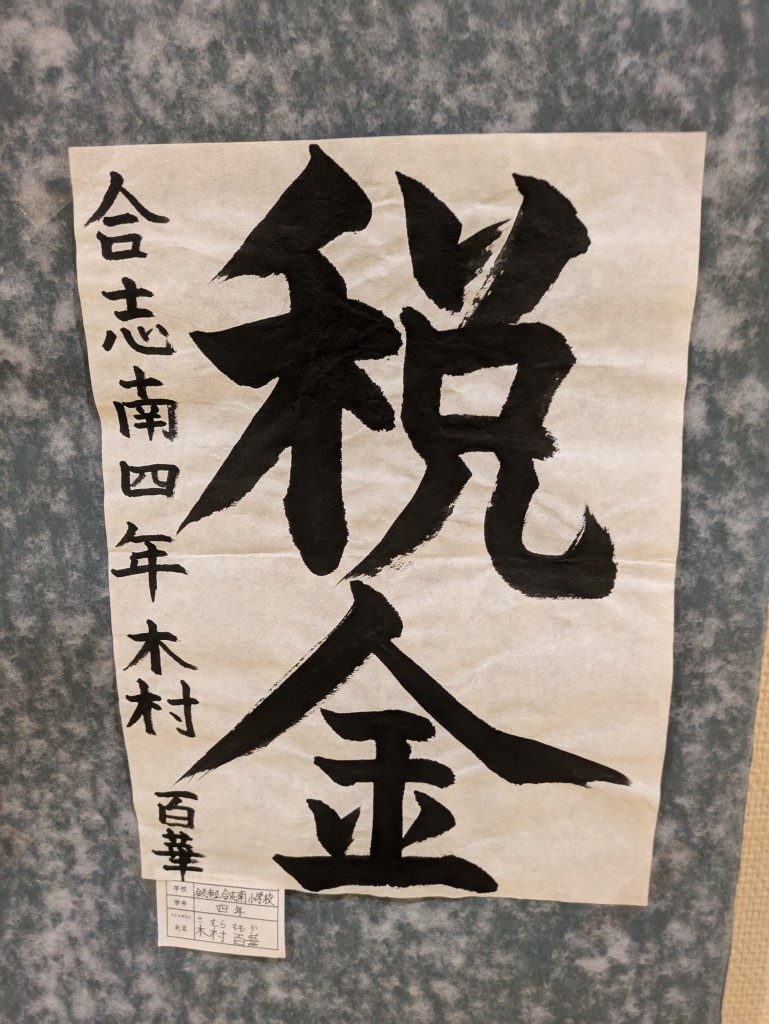 税金
合志南四年木村百華
学校 合志市立合志南小学校
学年 四年
ふりがな きむら ももか
氏名 木村 百華